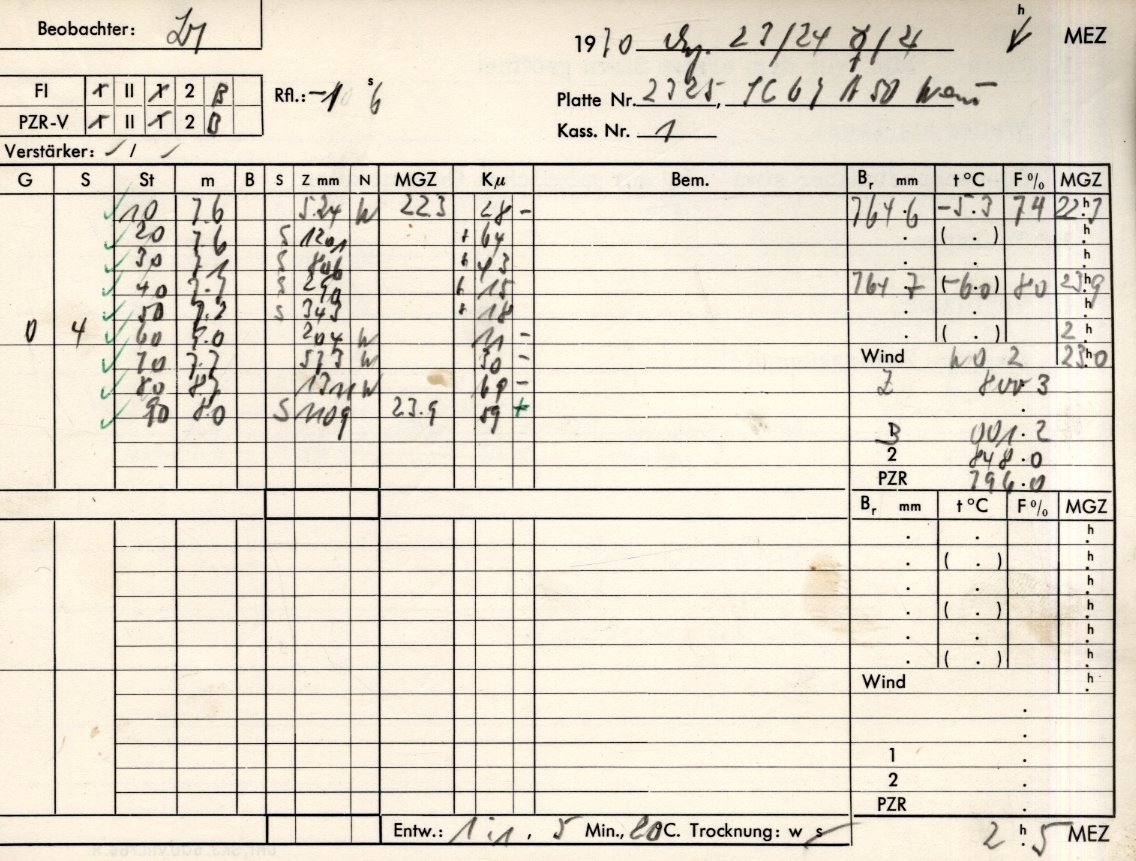 Beobachter:
1970 23/24 h MEZ
FI I II 1 2 B Rfl.: -1 s 6
Platte Nr. 2325,
PZR-V I II 1 2 B
Kass. Nr. 1
Verstärker: /
G S St m B S Z mm N MGZ Kμ Bem. Br mm t °C F % MGZ
10 7.6 524 W 22.3 28 - 764.6 -5.3 74 22.h3
20 7.6 S 1201 + 64 . ( . ) h
30 7.1 S 806 + 43 . . h
40 7.7 S 290 + 15 764.7 (-6.0) 80 23.h9
50 7.2 S 343 + 18 . . h
0 4 60 9.0 204 W 11 - . ( . ) 2.h
70 7.7 573 W 30 - Wind NO 2 23.h0
80 8.7 1311 W 69 - Z 800 3
90 8.0 S 1109 23.9 59 + .
B 001.2
2 848.0
PZR 796.0
Br mm t °C F % MGZ
. . h
. ( . ) h
. . h
. ( . ) h
. . h
. ( . ) h
Wind h
.
.
1 .
2 .
PZR .
Entw.: 1:1, 5 Min., 20 °C. Trocknung: w s 2 h.5 MEZ